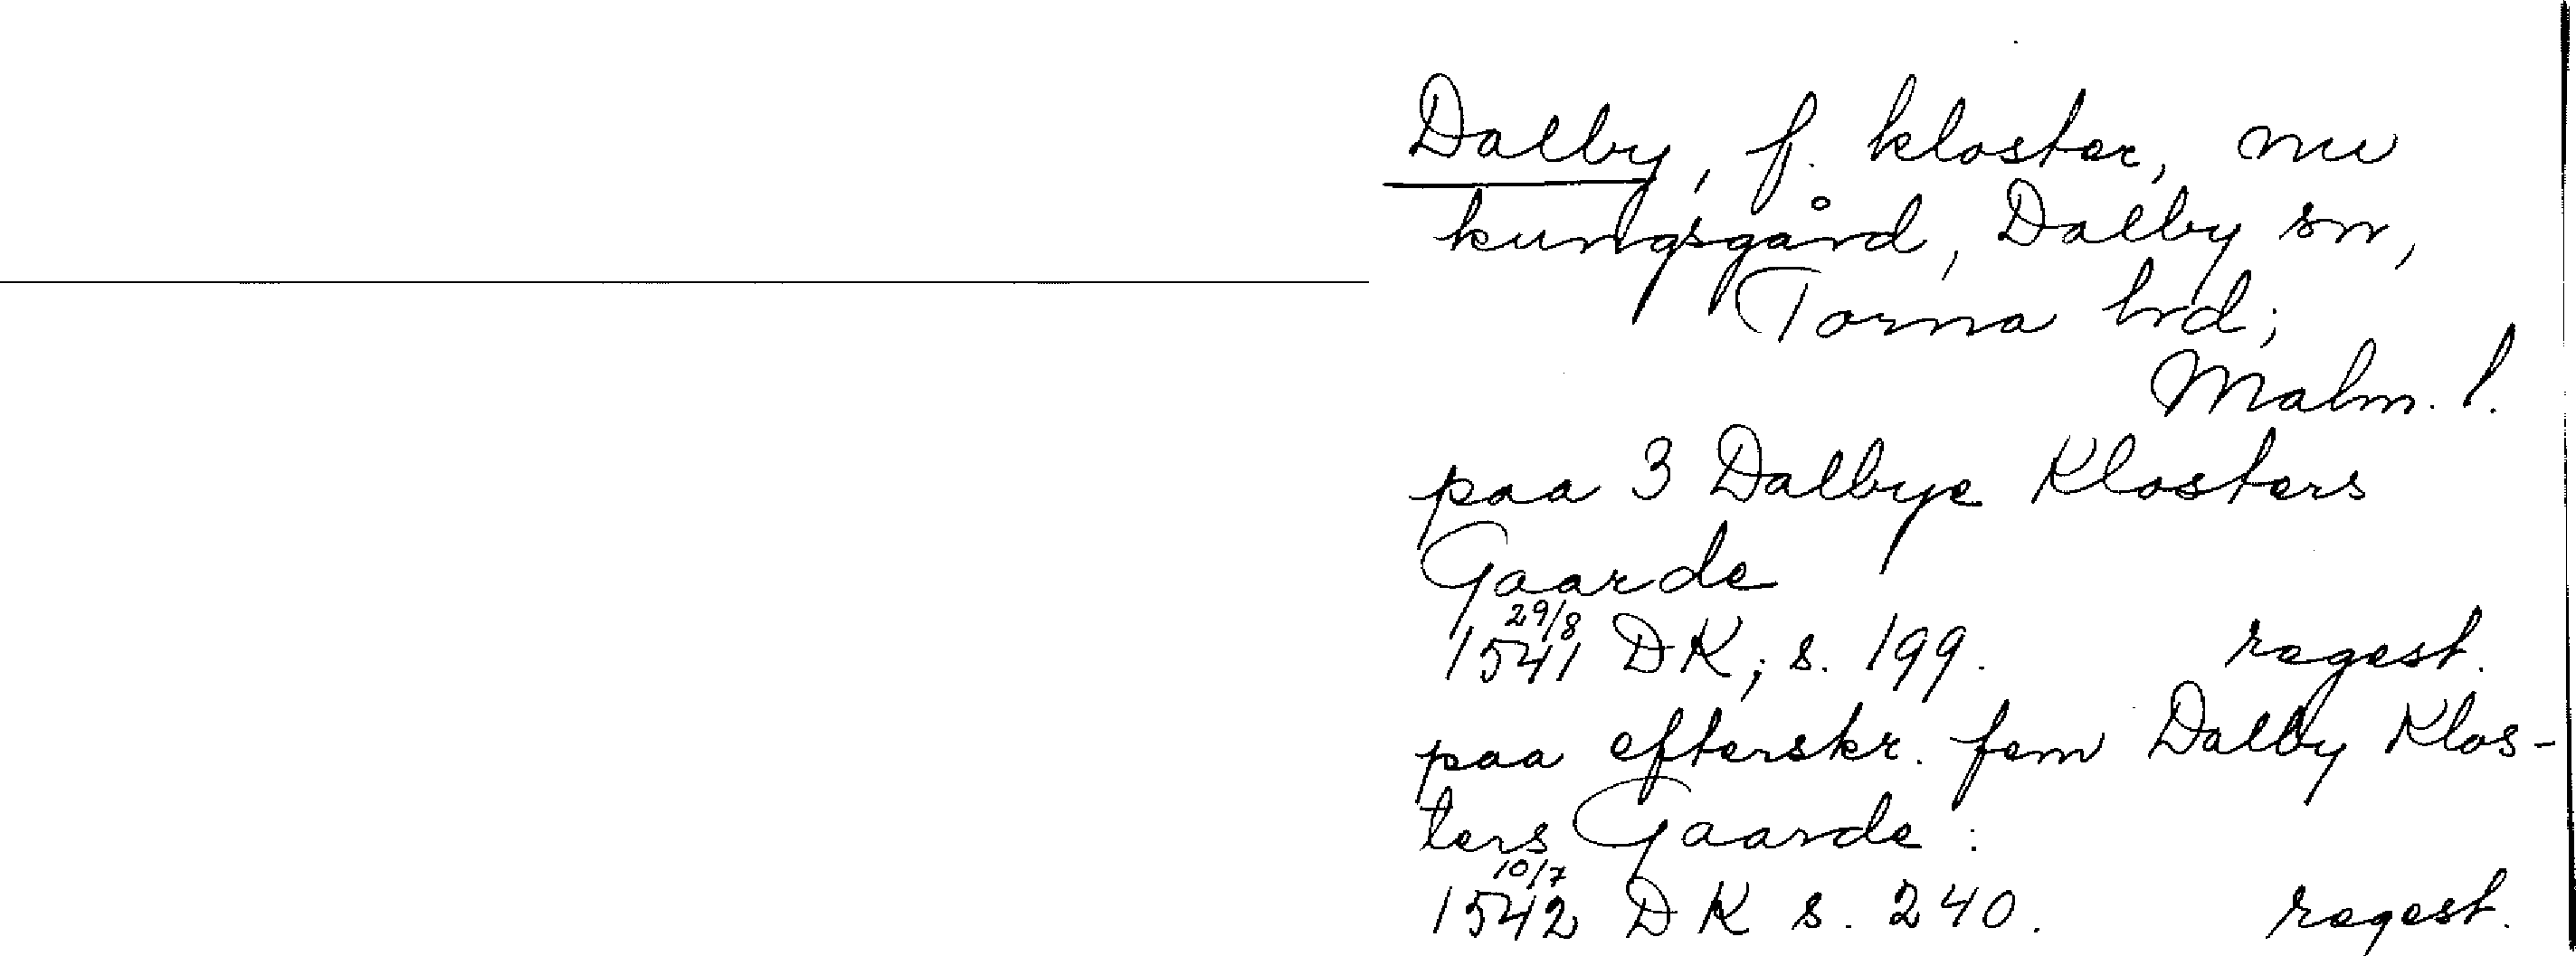 Dalby, f. kloster, nu
kungsgård, Dalby sn,
Torna hrd;
Malm. l.
paa 3 Dalbye Klosters
Gaarde
29/8
1541 DK, s. 199. regest.
paa efterskr. fem Dalby Klos-
ters Gaarde:
10/7
1542 DK s. 240. regest.